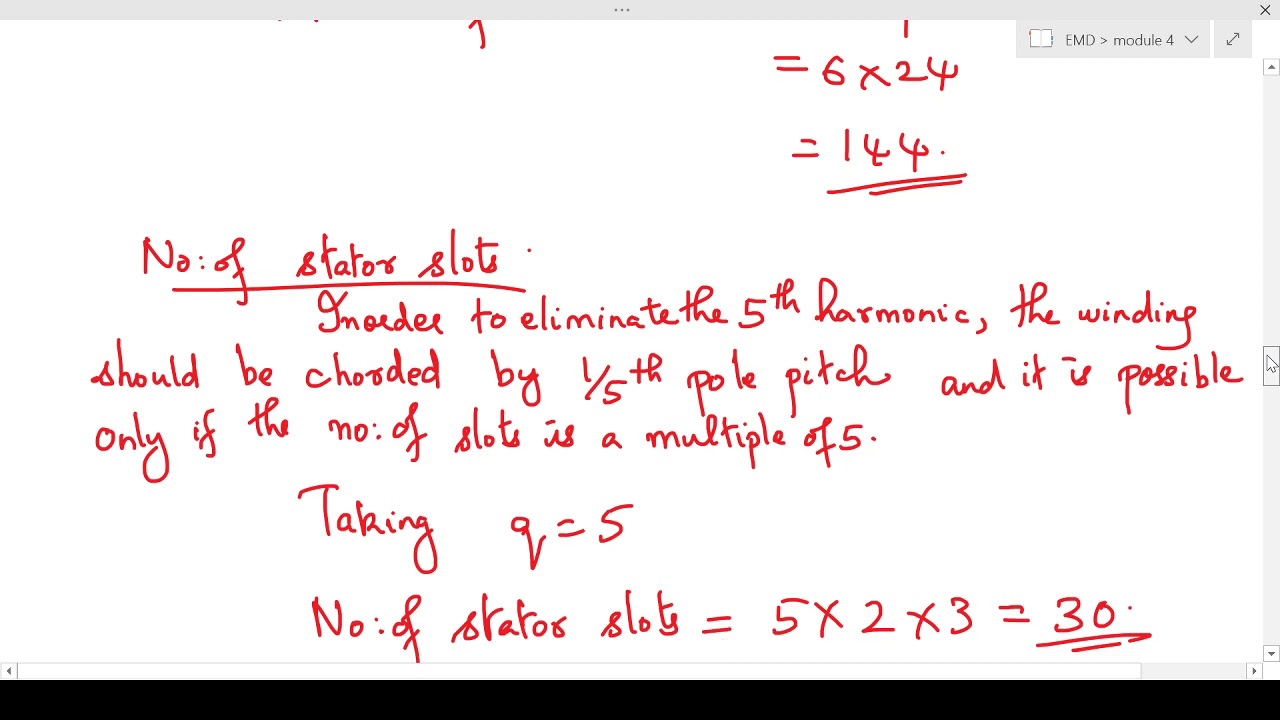 EMD > module 4
= 6 x 24
= 144.
No: of stator slots
Inorder to eliminate the 5th harmonic, the winding
should be chorded by 1/5th pole pitch and it is possible
only if the no: of slots is a multiple of 5.
Taking q = 5
No: of stator slots = 5 x 2 x 3 = 30.